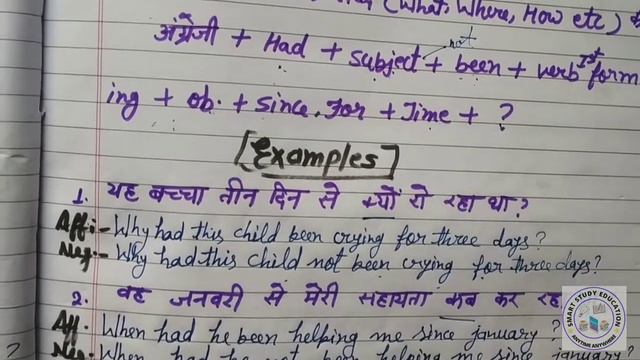 (What, Where, How etc)
अंग्रेजी + Had + subject + not been + verb Ist form
ing + ob. + since, For + Time + ?
[Examples]
1. यह बच्चा तीन दिन से क्यों रो रहा था?
Aff:- Why had this child been crying for three days?
Neg:- Why had this child not been crying for three days?
2. वह जनवरी से मेरी सहायता कब कर रहा
Aff. When had he been helping me since january?
Neg. When had he not been helping me since january
SMART STUDY EDUCATION
ANYTIME ANYWHERE